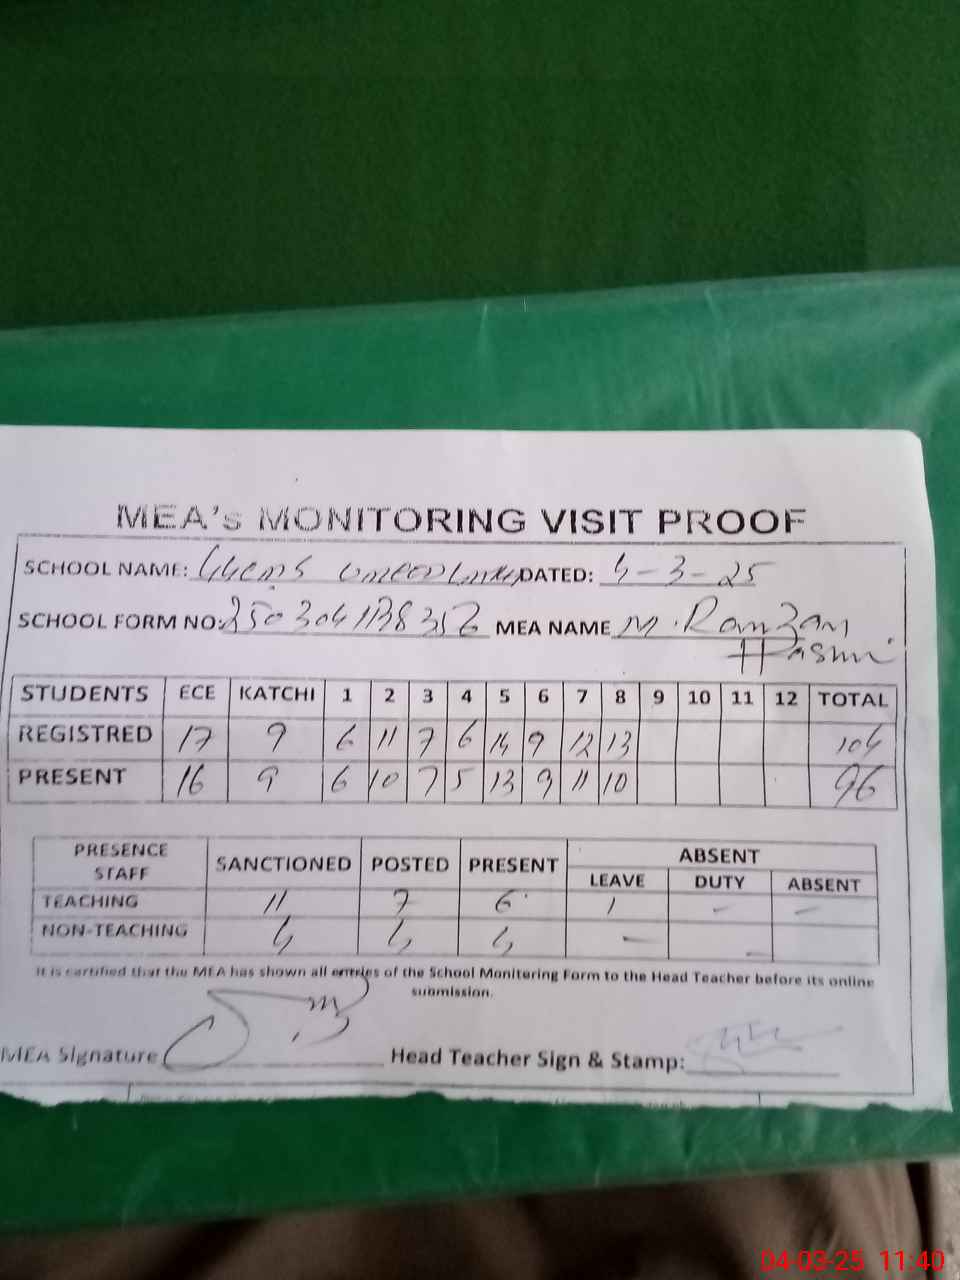 MEA's MONITORING VISIT PROOF
SCHOOL NAME: DATED: 4-3-25
SCHOOL FORM NO: MEA NAME M. Ramzan
Hasmi
STUDENTS ECE KATCHI 1 2 3 4 5 6 7 8 9 10 11 12 TOTAL
REGISTRED 17 9 6 11 7 6 14 9 12 13 104
PRESENT 16 9 6 10 7 5 13 9 11 10 96
PRESENCE STAFF SANCTIONED POSTED PRESENT ABSENT
LEAVE DUTY ABSENT
TEACHING 11 7 6 1 - -
NON-TEACHING 4 4 4 - -
It is certified that the MEA has shown all entries of the School Monitering Form to the Head Teacher before its online
submission.
MEA Signature Head Teacher Sign & Stamp:
04-03-25 11:40